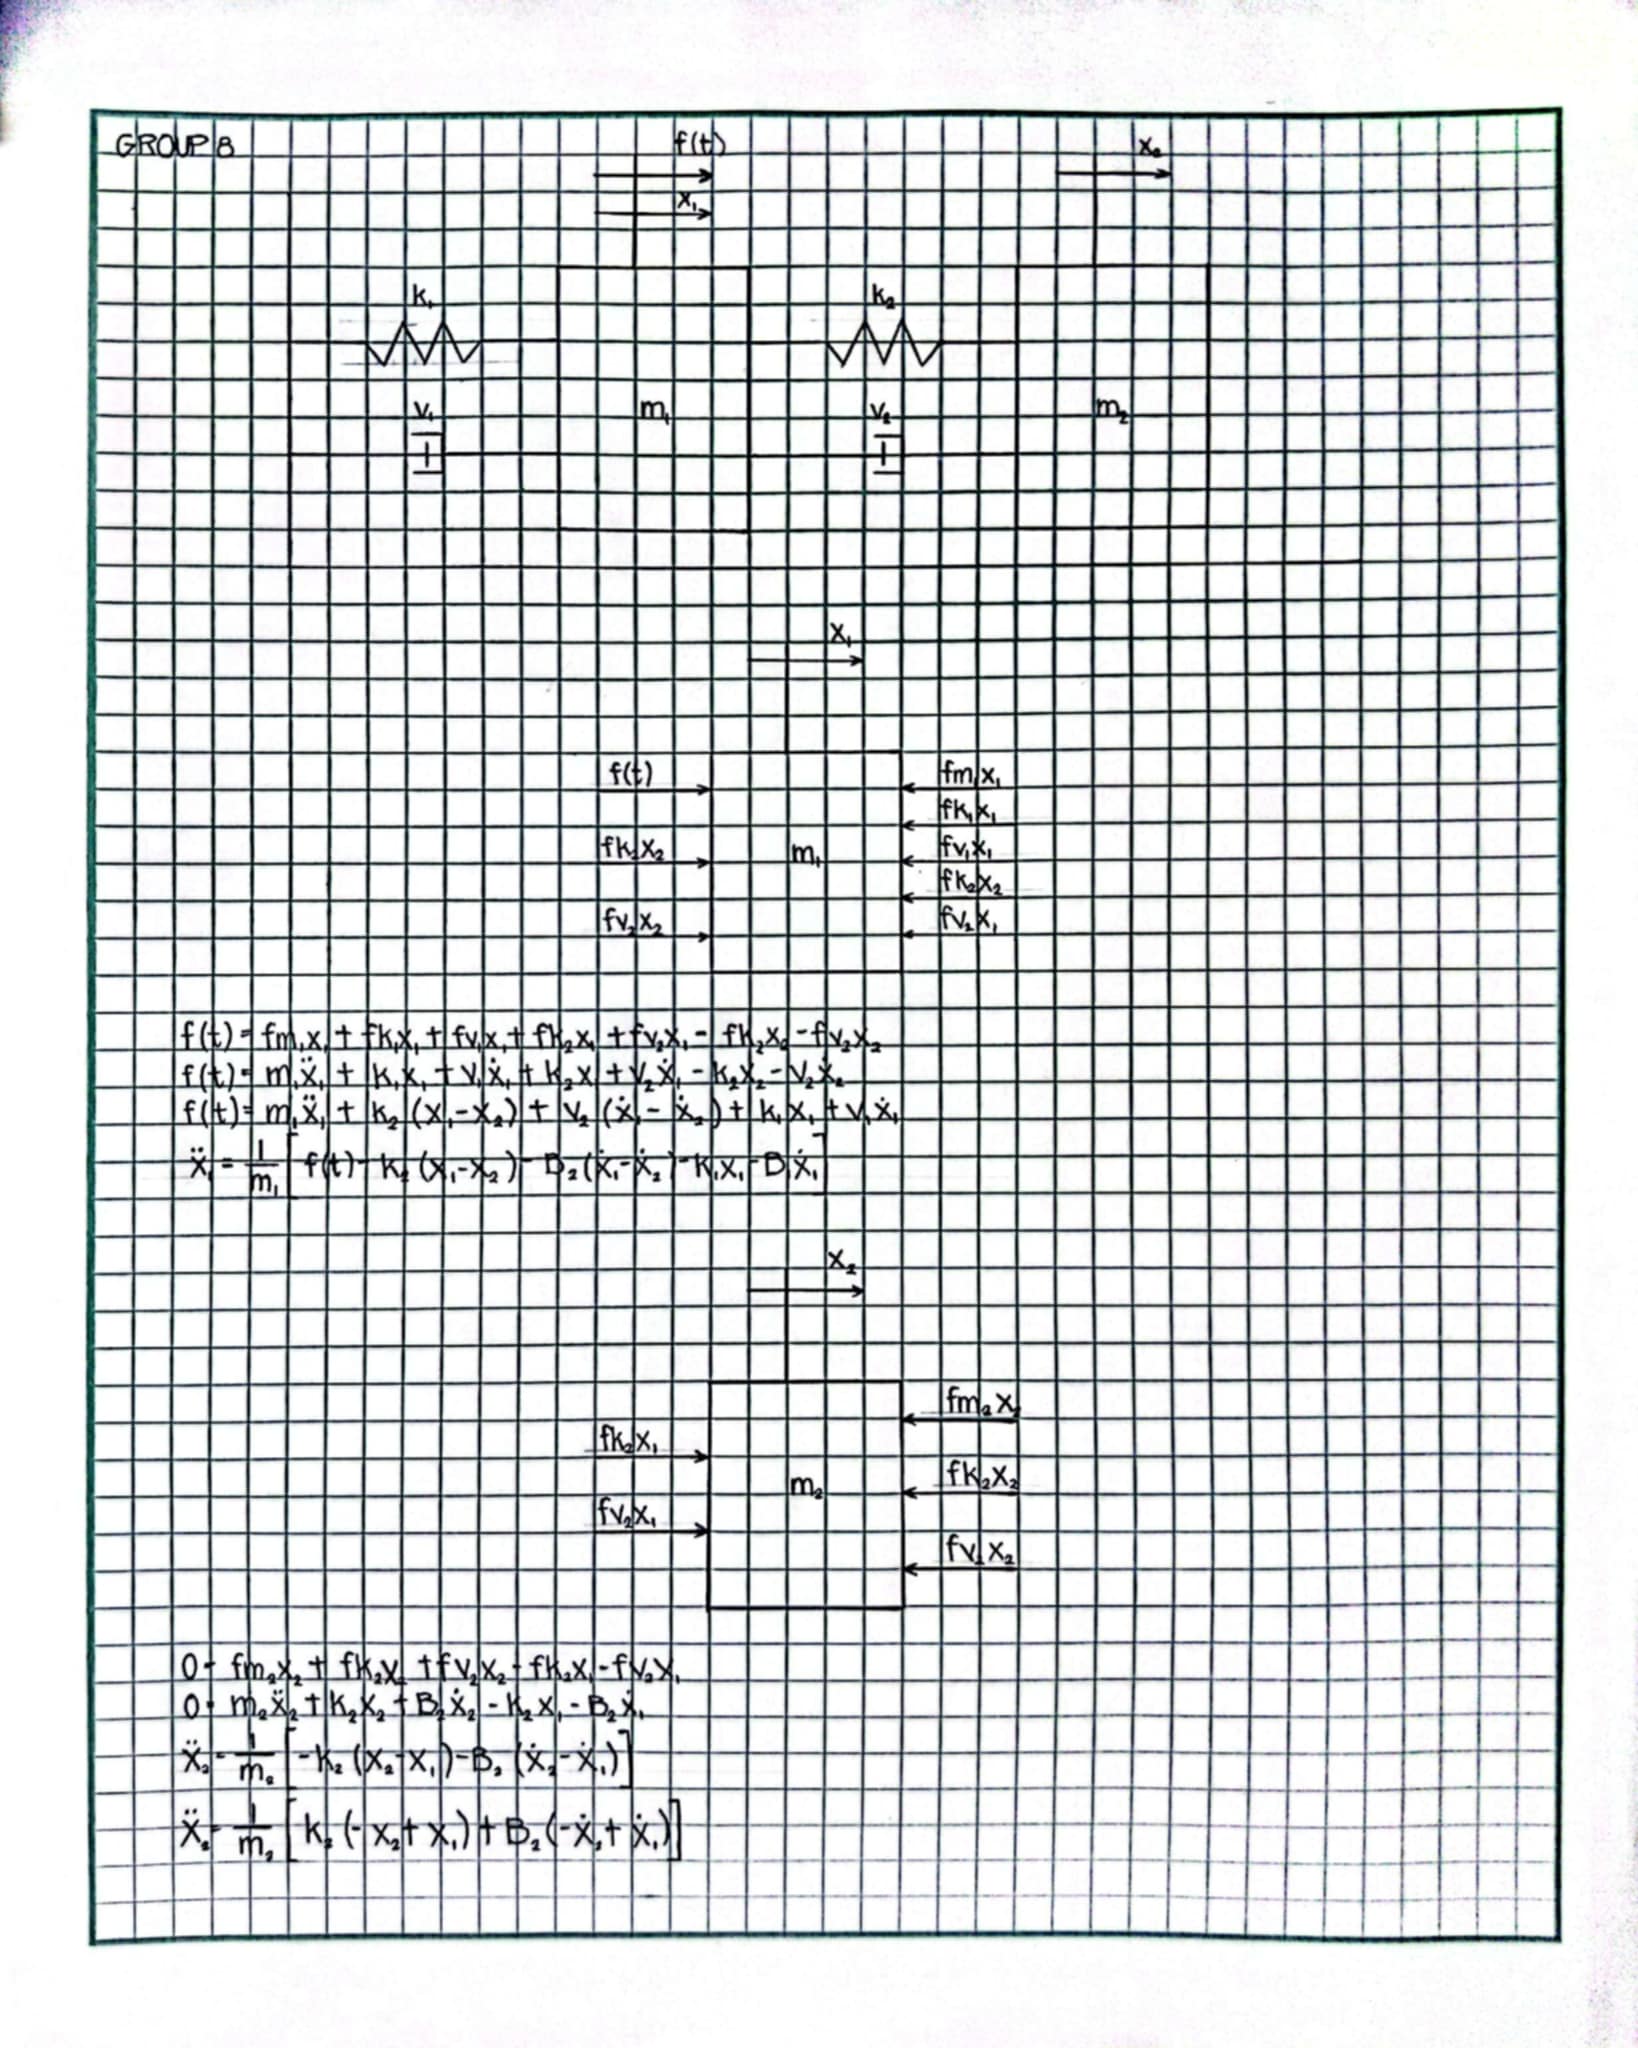 GROUP 8
f(t)
x₁
x₂
k₁
k₂
v₁
m₁
v₂
m₂
x₁
f(t)
fm₁x₁
fk₁x₁
fk₂x₂
m₁
fv₁x₁
fk₂x₂
fv₂x₂
fv₂x₁
f(t) = fm₁x₁ + fk₁x₁ + fv₁x₁ + fk₂x₁ + fv₂x₁ - fk₂x₂ - fv₂x₂
f(t) = m₁ẍ₁ + k₁x₁ + v₁ẋ₁ + k₂x₁ + v₂ẋ₁ - k₂x₂ - v₂ẋ₂
f(t) = m₁ẍ₁ + k₂(x₁-x₂) + v₂(ẋ₁-ẋ₂) + k₁x₁ + v₁ẋ₁
ẍ₁ = 1/m₁ [f(t) - k₂(x₁-x₂) - B₂(ẋ₁-ẋ₂) - k₁x₁ - B₁ẋ₁]
x₂
fm₂x₂
fk₂x₁
m₂
fk₂x₂
fv₂x₁
fv₂x₂
0 = fm₂x₂ + fk₂x₂ + fv₂x₂ - fk₂x₁ - fv₂x₁
0 = m₂ẍ₂ + k₂x₂ + B₂ẋ₂ - k₂x₁ - B₂ẋ₁
ẍ₂ = 1/m₂ [-k₂(x₂-x₁) - B₂(ẋ₂-ẋ₁)]
ẍ₂ = 1/m₂ [k₂(-x₂+x₁) + B₂(-ẋ₂+ẋ₁)]